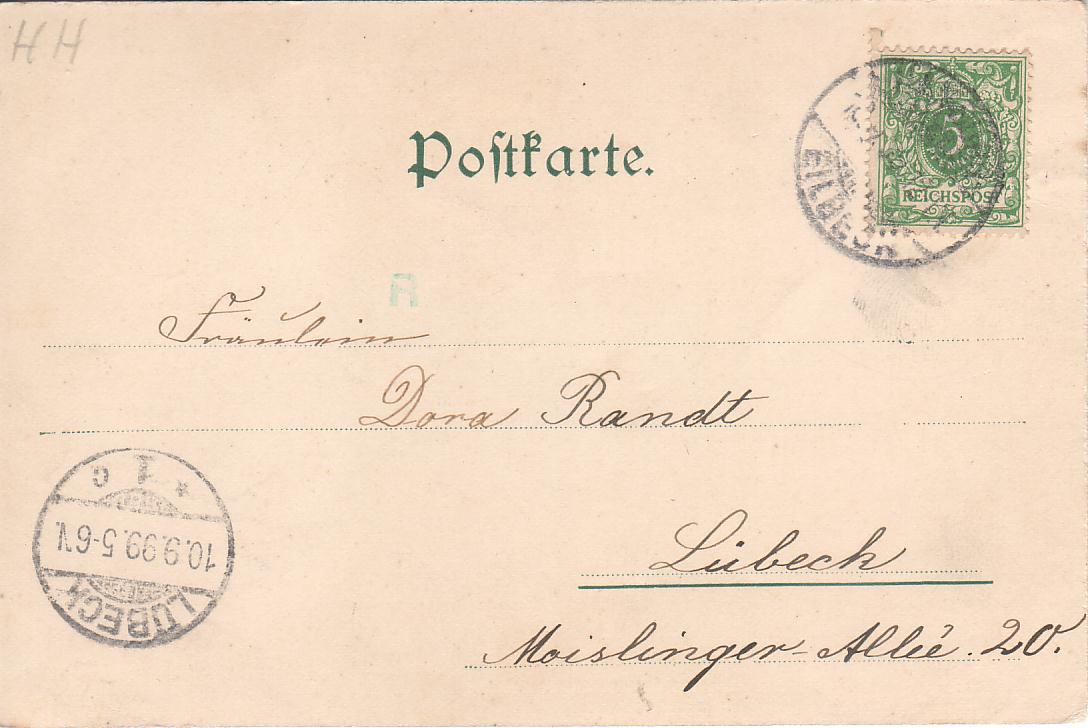 HH
Postkarte.
5
REICHSPOST
EILBECK
R
Fräulein
Dora Randt
Lübeck
Moislinger-Allée. 20.
* 1 c
10.9.99.5-6V.
LÜBECK